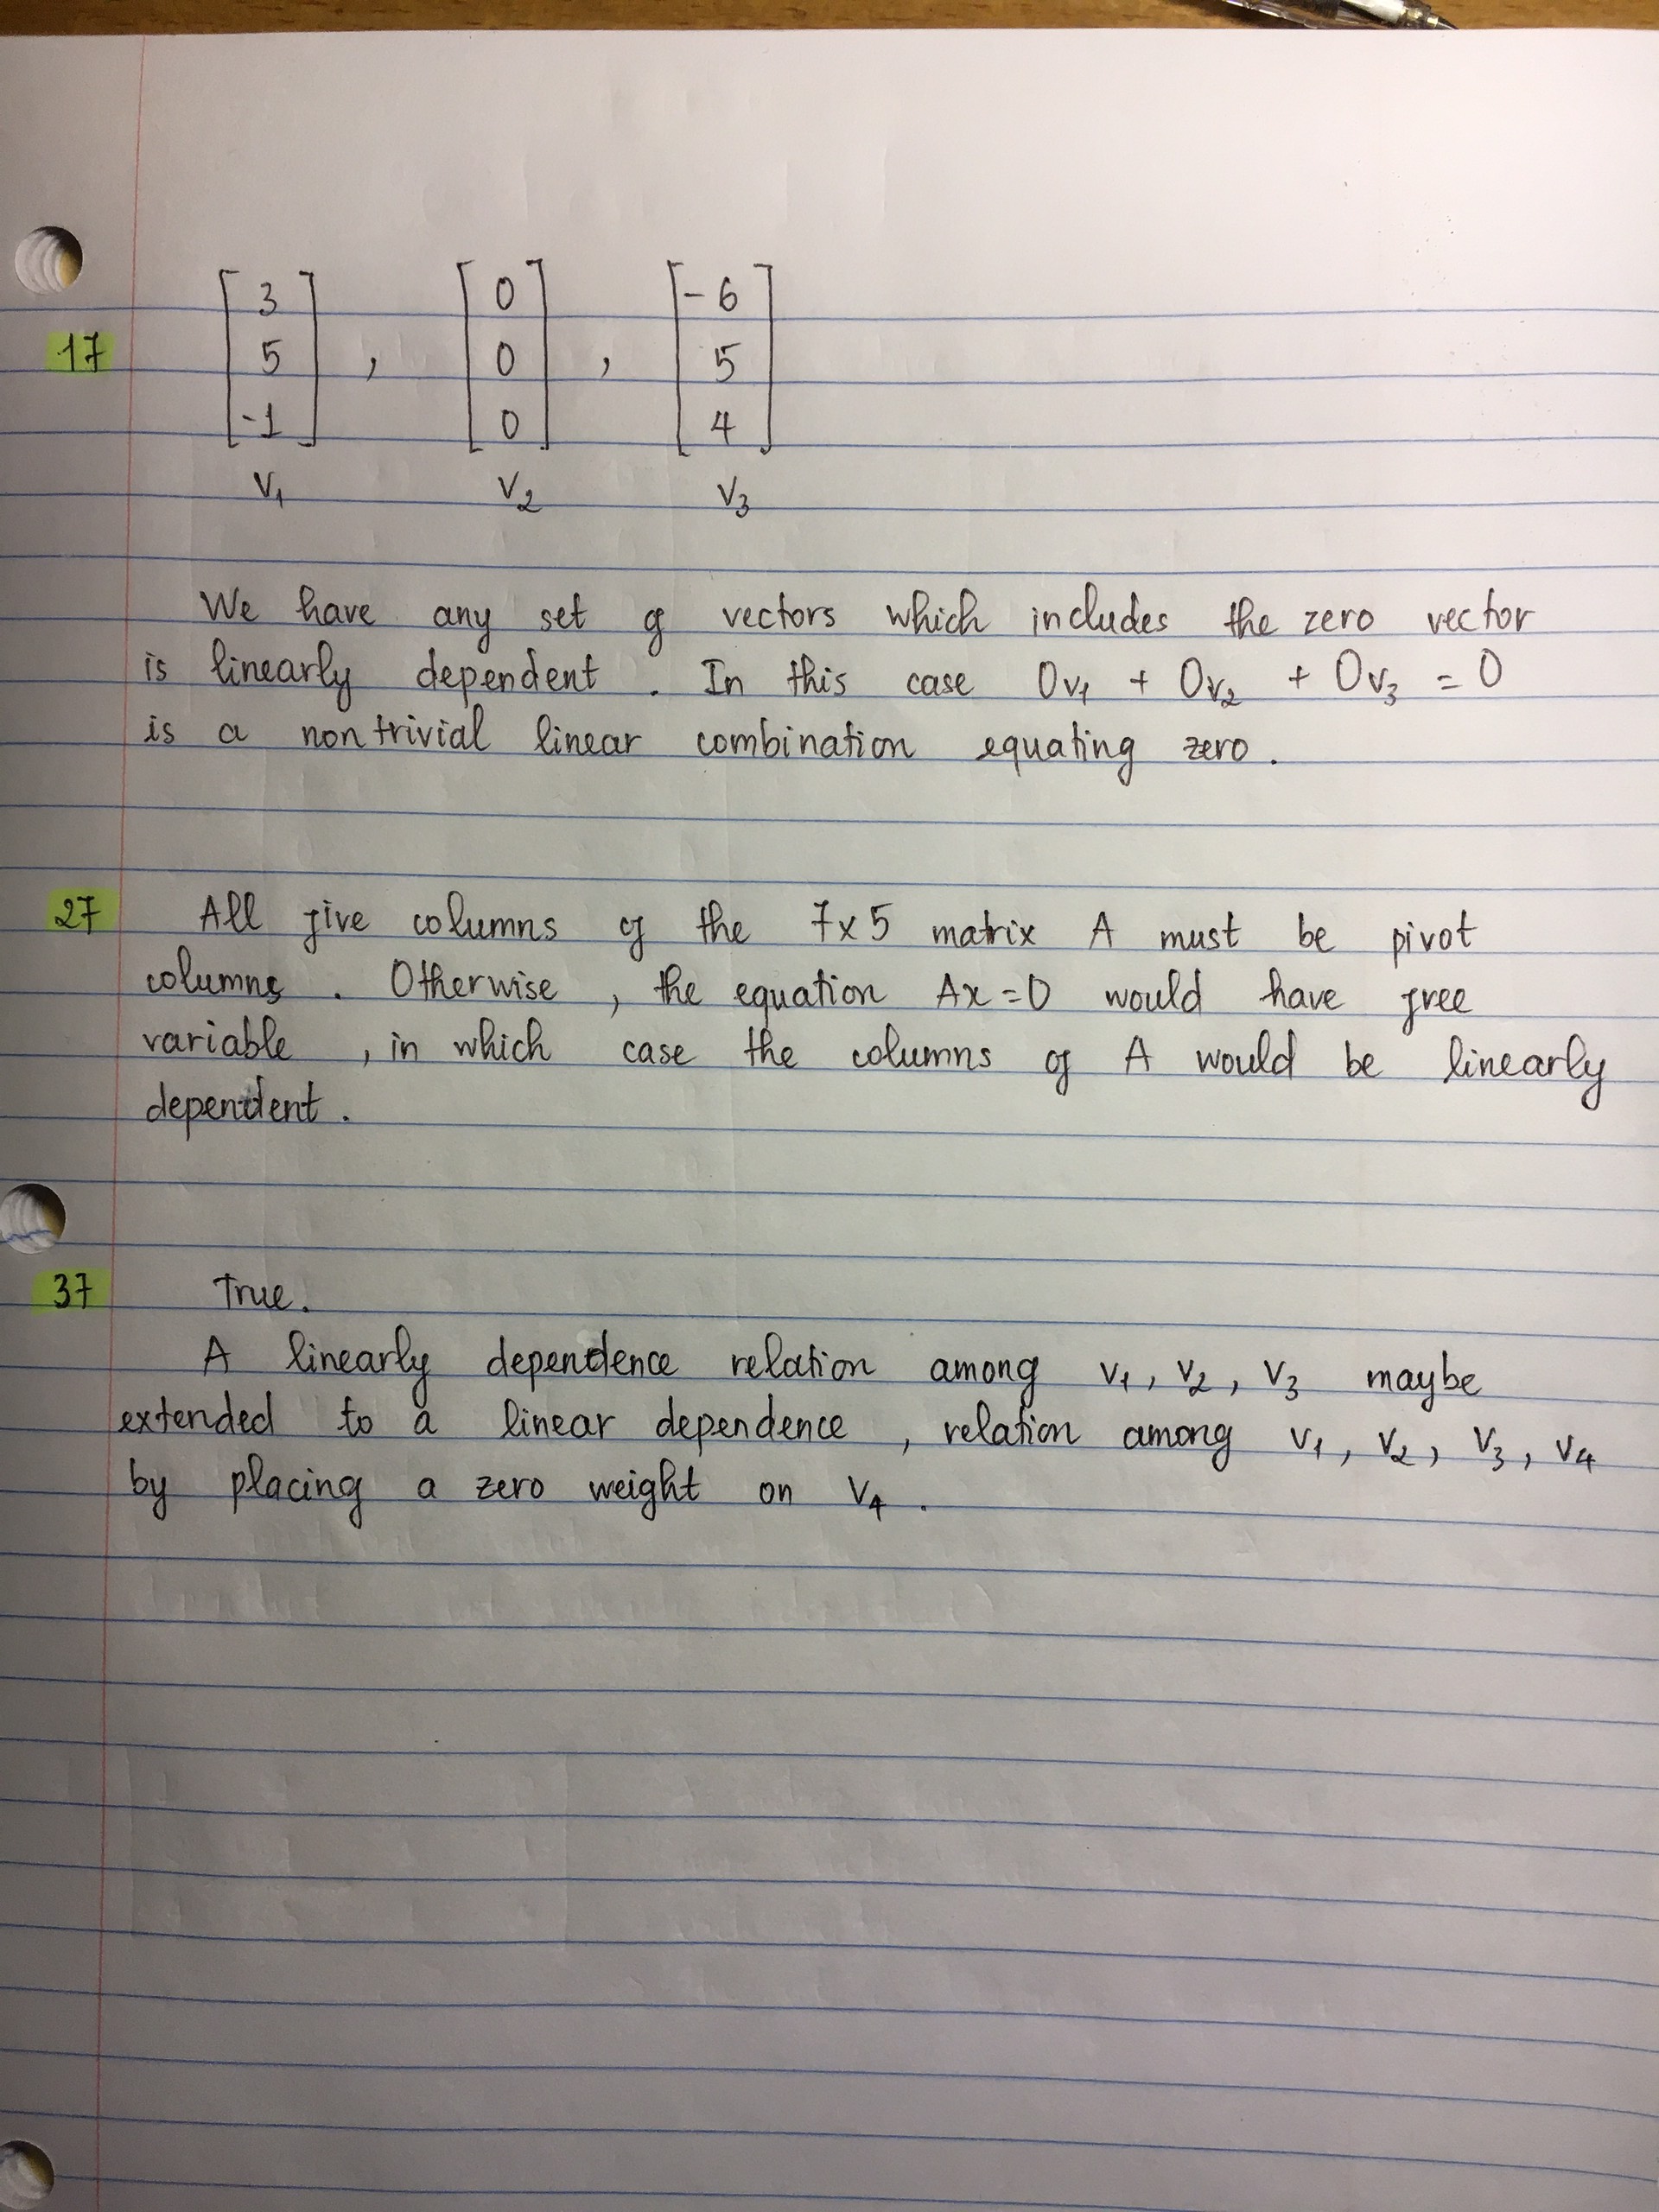 17
[3 5 -1] , [0 0 0] , [-6 5 4]
V1 V2 V3
We have any set of vectors which includes the zero vector
is linearly dependent . In this case 0v1 + 0v2 + 0v3 = 0
is a nontrivial linear combination equating zero .
27 All five columns of the 7x5 matrix A must be pivot
columns . Otherwise , the equation Ax=0 would have free
variable , in which case the columns of A would be linearly
dependent .
37 True.
A linearly dependence relation among v1, v2, v3 maybe
extended to a linear dependence , relation among v1, v2, v3, v4
by placing a zero weight on v4 .